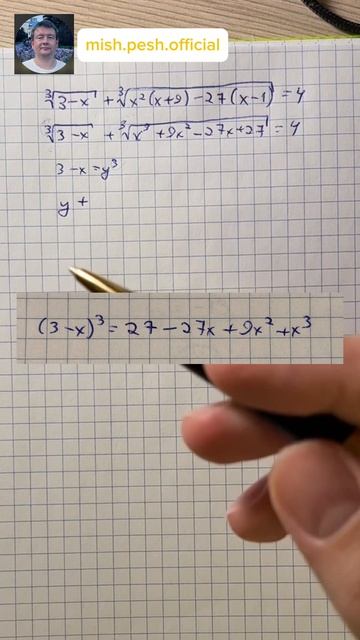 mish.pesh.official
∛(3-x) + ∛(x²(x+9) - 27(x-1)) = 4
∛(3-x) + ∛(x³ + 9x² - 27x + 27) = 4
3 - x = y³
y +
(3-x)³ = 27 - 27x + 9x² + x³